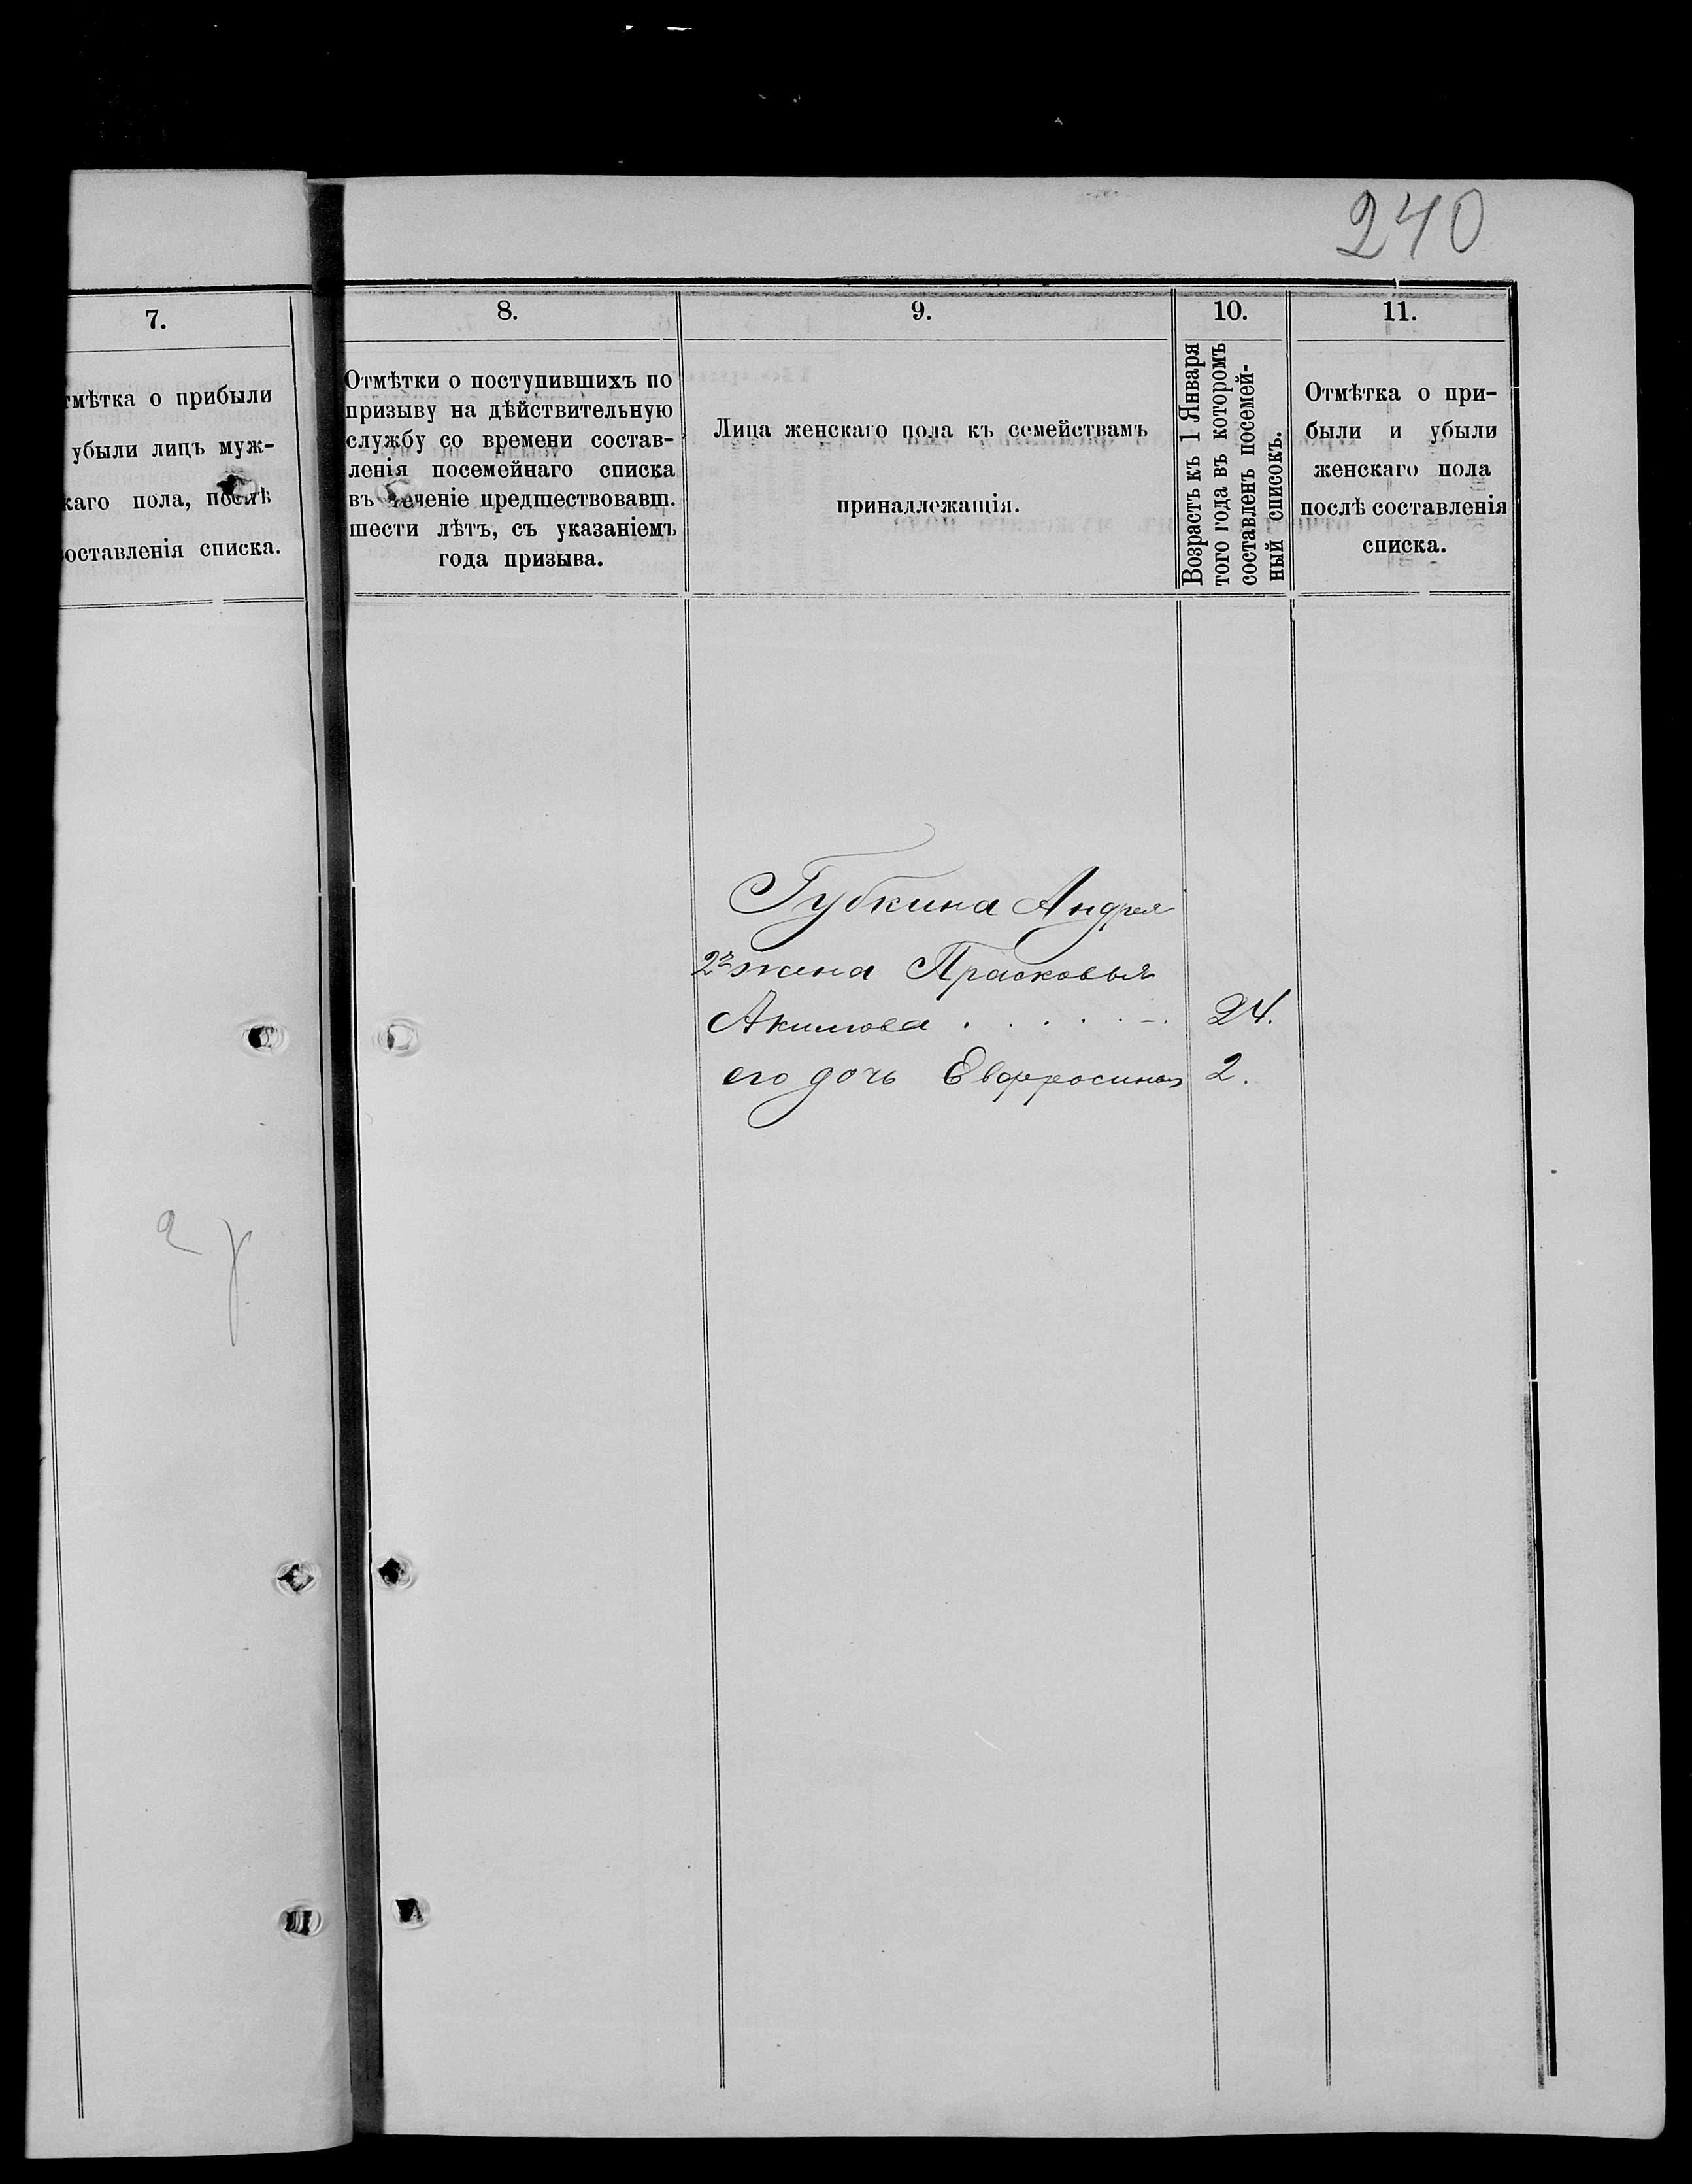 240
7.
тмѣтка о прибыли
убыли лицъ муж-
каго пола, послѣ
составленія списка.
8.
Отмѣтки о поступившихъ по
призыву на дѣйствительную
службу со времени состав-
ленія посемейнаго списка
въ теченіе предшествовавш.
шести лѣтъ, съ указаніемъ
года призыва.
9.
Лица женскаго пола къ семействамъ
принадлежащія.
10.
Возрастъ къ 1 Января
того года въ которомъ
составленъ посемей-
ный списокъ.
11.
Отмѣтка о при-
были и убыли
женскаго пола
послѣ составленія
списка.
Губкина Андрея
2я жена Прасковья
Акимова . . . . . - . 24.
его дочь Евфросинья 2.
2